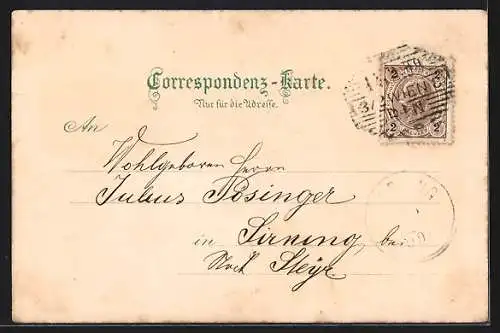 Correspondenz-Karte.
Nur für die Adresse.
An
Wohlgeboren Herrn
Julius Posinger
in Sirning, bei
Steyr
2 2
2 2